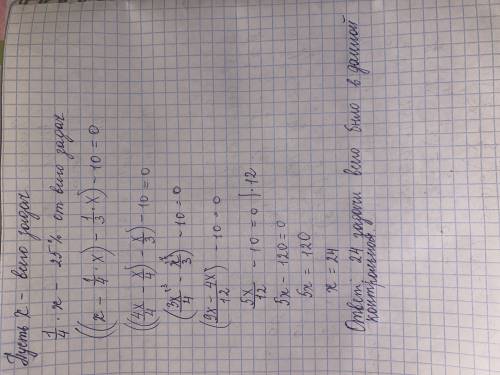 Пусть x - всего задач
1/4 · x - 25% от всего задач
((x - 1/4 · x) - 1/3 · x) - 10 = 0
((4x/4 - x/4) - x/3) - 10 = 0
(3x/4 - x/3) - 10 = 0
(9x - 4x/12) - 10 = 0
5x/12 - 10 = 0 | · 12
5x - 120 = 0
5x = 120
x = 24
Ответ: 24 задачи всего было в данной
контрольной.